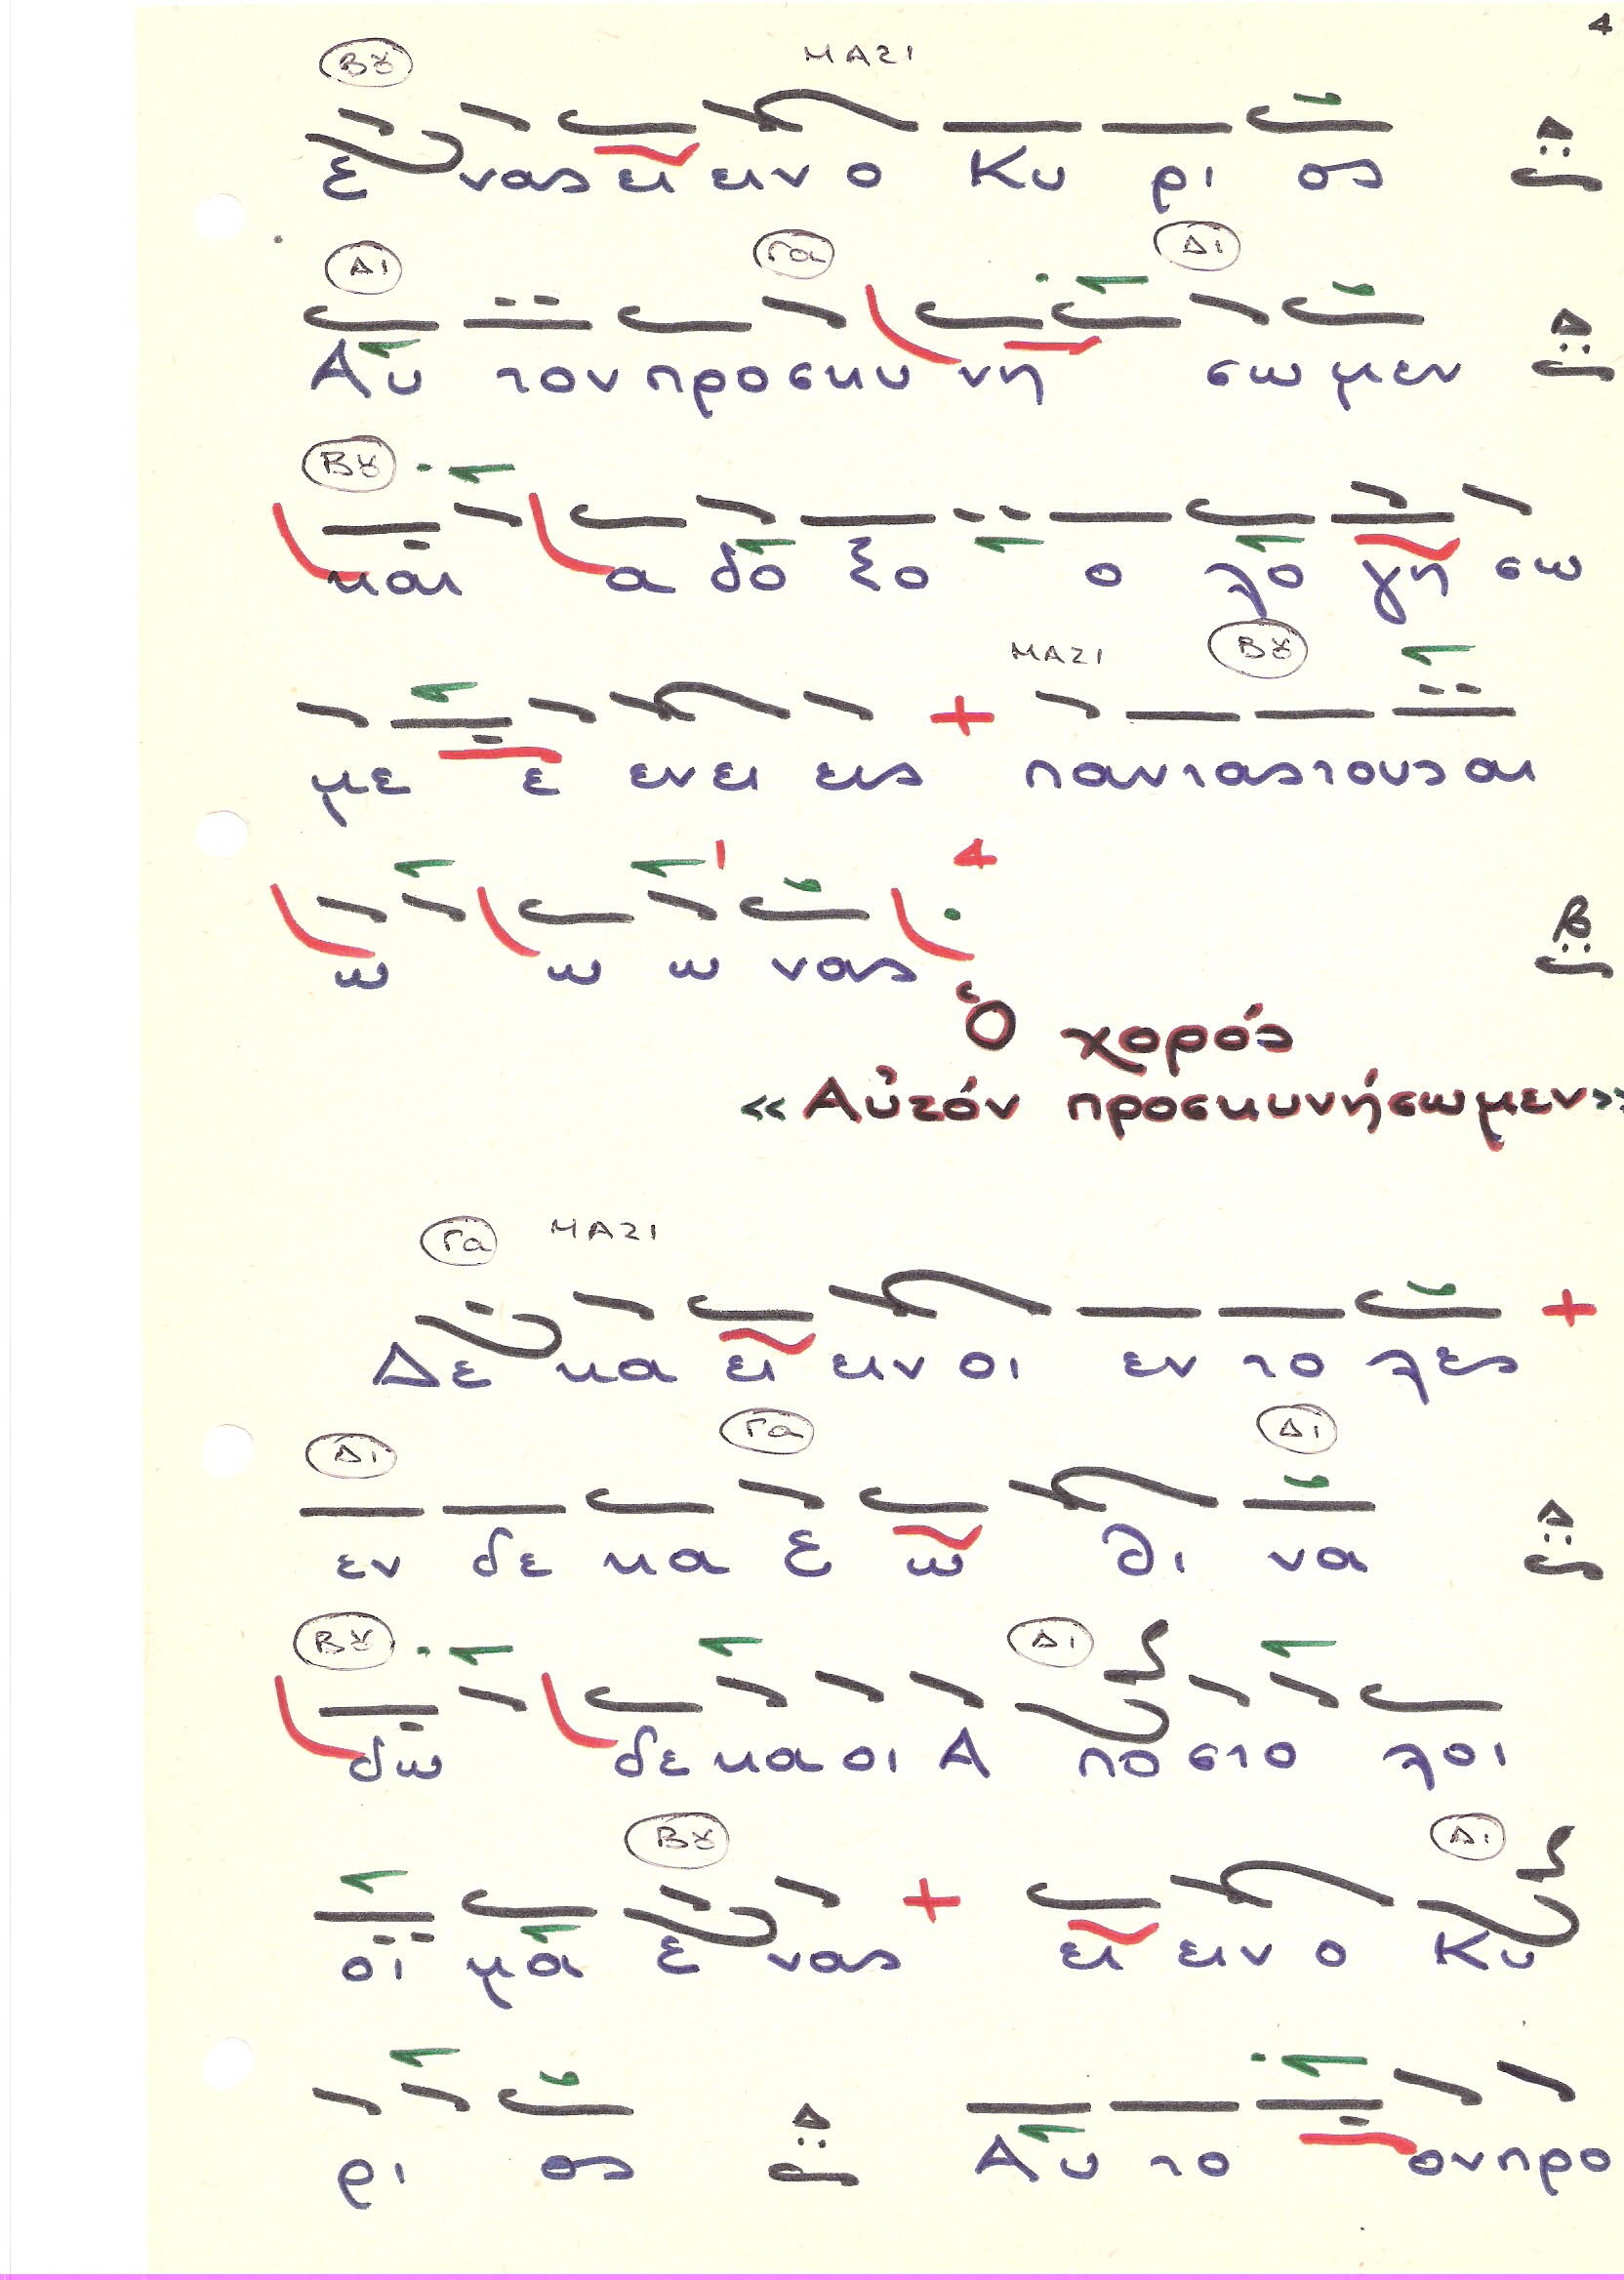 4
Βȣ ΜΑΖΙ
Ε νας ει ειν ο Κυ ρι ος Δ
Δι Γα Δι
Αυ τον προσκυ νη σω μεν Δ
Βȣ
και α δο ξο ο λο γη σω
ΜΑΖΙ Βȣ
με ε ενει εις + παντας τους αι
1 4
ω ω ω νας β
Ὁ χορός
«Αὐτόν προσκυνήσωμεν»
Γα ΜΑΖΙ
Δε κα ει ειν οι εν το λες +
Δι Γα Δι
εν δε κα Ε ω θι να Δ
Βȣ Δι
δω δε κα οι Α πο στο λοι
Βȣ Δι
οι μα Ε νας + ει ειν ο Κυ
ρι ος Δ Αυ το ον προ